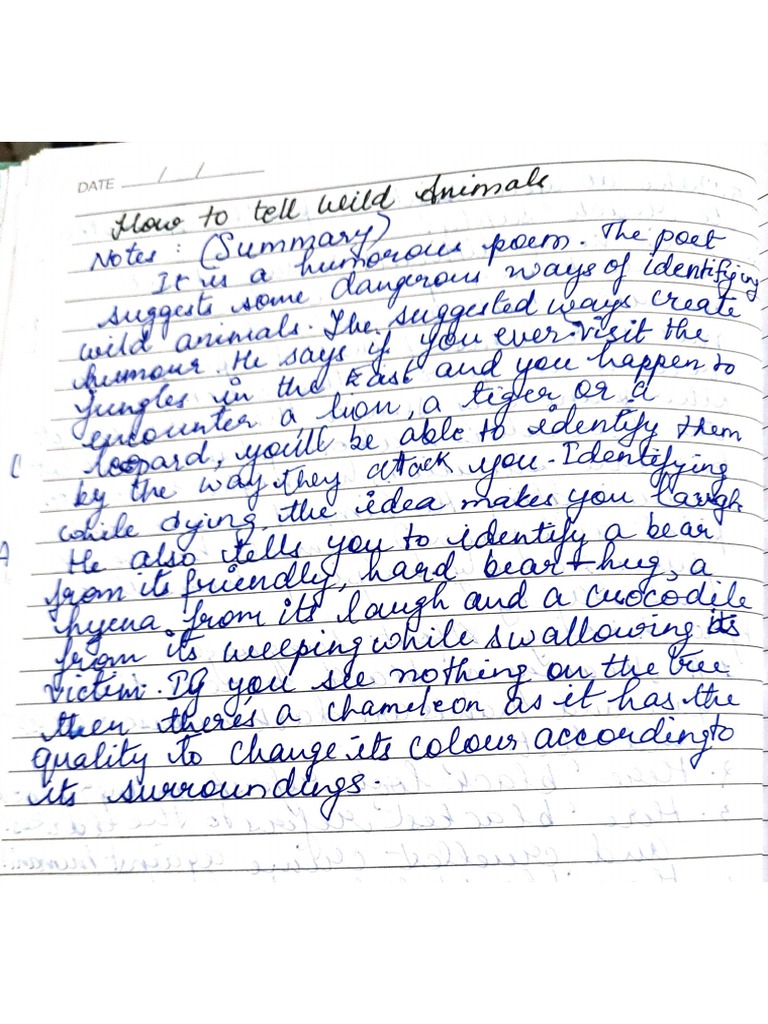 DATE / /
How to tell Wild Animals
Notes : (Summary)
It is a humorous poem. The poet
suggests some dangerous ways of identifying
wild animals. The suggested ways create
humour. He says if you ever visit the
jungles in the East and you happen to
encounter a lion, a tiger or a
leopard, you'll be able to identify them
by the way they attack you. Identifying
while dying, the idea makes you laugh
He also tells you to identify a bear
from its friendly, hard bear hug, a
hyena from its laugh and a crocodile
from its weeping while swallowing its
victim. If you see nothing on the tree
then there's a chameleon as it has the
quality to change its colour according to
its surroundings.